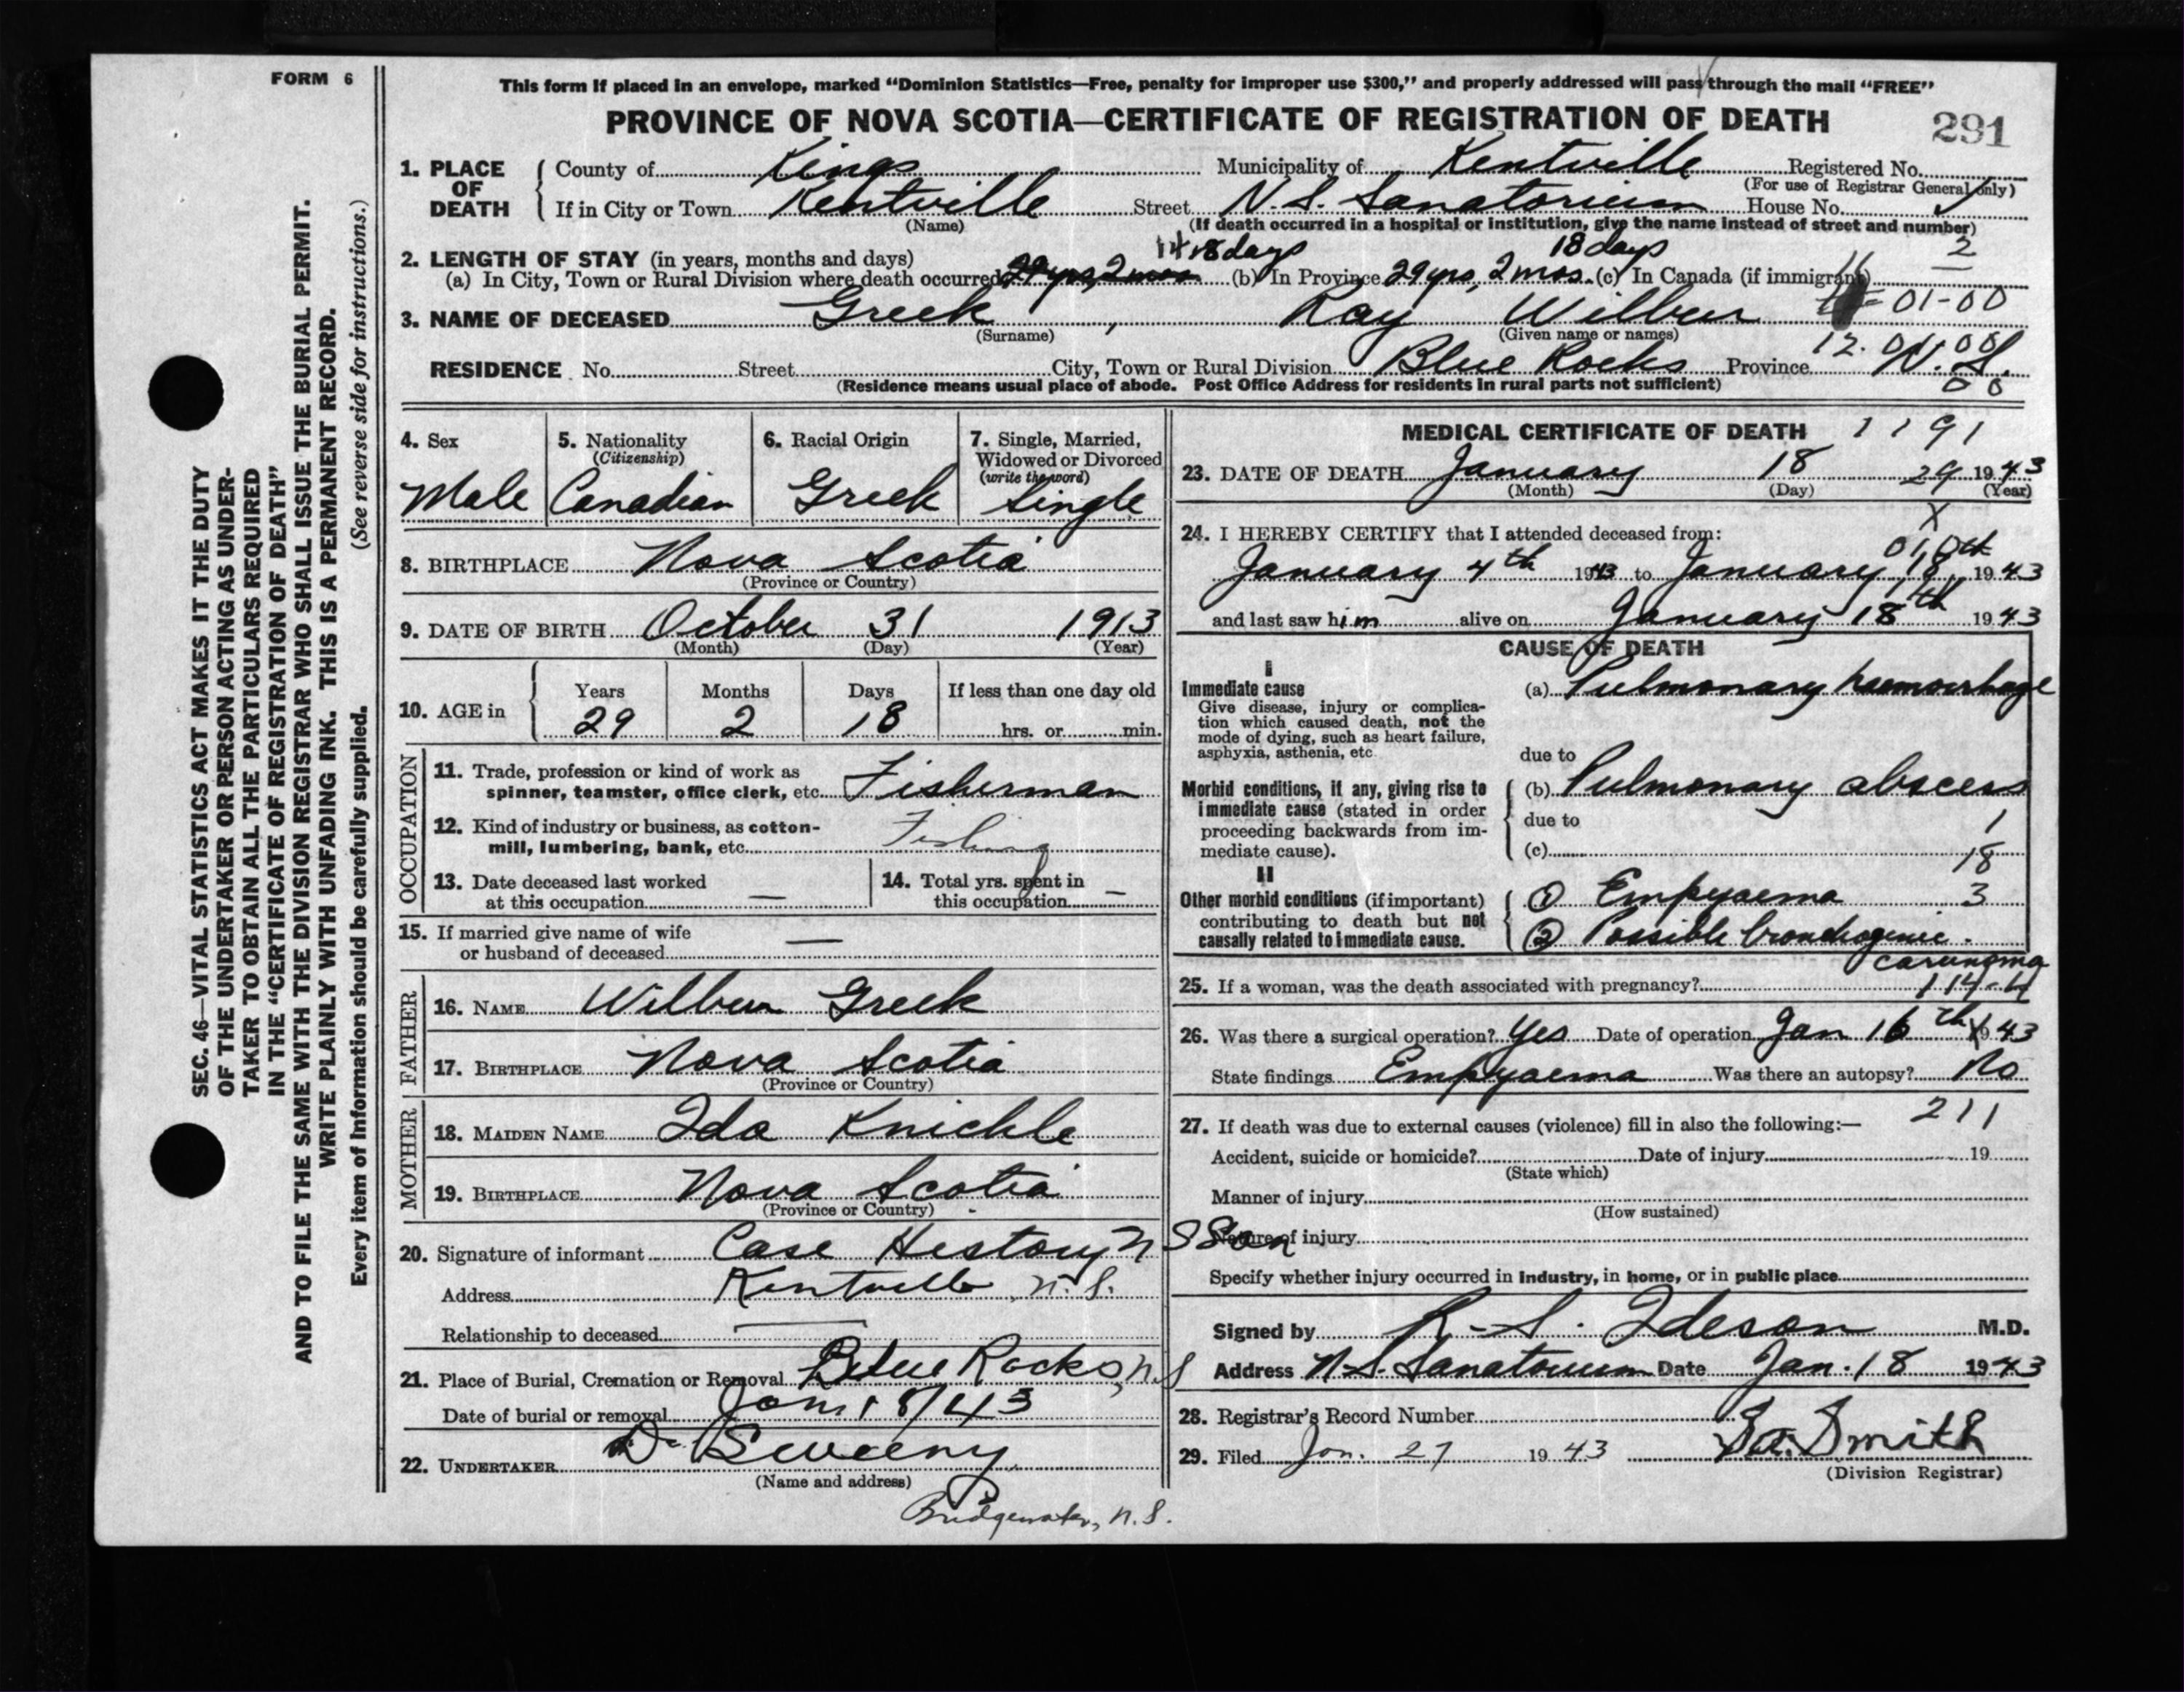 FORM 6
This form if placed in an envelope, marked “Dominion Statistics—Free, penalty for improper use $300,” and properly addressed will pass through the mail “FREE”
PROVINCE OF NOVA SCOTIA—CERTIFICATE OF REGISTRATION OF DEATH
291
1. PLACE OF DEATH
County of Kings Municipality of Kentville Registered No.
(For use of Registrar General only)
If in City or Town Kentville Street N. S. Sanatorium House No.
(Name) (If death occurred in a hospital or institution, give the name instead of street and number)
2. LENGTH OF STAY (in years, months and days) 14 18 days 18 days 2
(a) In City, Town or Rural Division where death occurred 29 yrs, 2 mos. (b) In Province 29 yrs, 2 mos. (c) In Canada (if immigrant)
01-00
3. NAME OF DECEASED Greek, Ray Wilbur
(Surname) (Given name or names)
12. 01.00
RESIDENCE No. Street City, Town or Rural Division Blue Rocks Province N. S.
(Residence means usual place of abode. Post Office Address for residents in rural parts not sufficient) 00
4. Sex
Male
5. Nationality
(Citizenship)
Canadian
6. Racial Origin
Greek
7. Single, Married,
Widowed or Divorced
(write the word)
Single
8. BIRTHPLACE Nova Scotia
(Province or Country)
9. DATE OF BIRTH October 31 1913
(Month) (Day) (Year)
10. AGE in
Years Months Days If less than one day old
29 2 18 hrs. or min.
OCCUPATION
11. Trade, profession or kind of work as
spinner, teamster, office clerk, etc. Fisherman
12. Kind of industry or business, as cotton-
mill, lumbering, bank, etc. Fishing
13. Date deceased last worked
at this occupation —
14. Total yrs. spent in
this occupation —
15. If married give name of wife
or husband of deceased —
FATHER
16. NAME Wilbur Greek
17. BIRTHPLACE Nova Scotia
(Province or Country)
MOTHER
18. MAIDEN NAME Ida Knickle
19. BIRTHPLACE Nova Scotia
(Province or Country)
20. Signature of informant Case History N S San
Address Kentville, N. S.
Relationship to deceased —
21. Place of Burial, Cremation or Removal Blue Rocks, N S
Date of burial or removal Jan. 18/43
22. UNDERTAKER D. Sweeny
(Name and address)
Bridgewater, N. S.
MEDICAL CERTIFICATE OF DEATH 1191
23. DATE OF DEATH January 18 29 1943
(Month) (Day) (Year)
X
24. I HEREBY CERTIFY that I attended deceased from:
010
January 4th 1943 to January 18th 1943
and last saw him alive on January 18th 1943
CAUSE OF DEATH
I
Immediate cause
Give disease, injury or complica-
tion which caused death, not the
mode of dying, such as heart failure,
asphyxia, asthenia, etc.
(a) Pulmonary hemorrhage
due to
Morbid conditions, if any, giving rise to
immediate cause (stated in order
proceeding backwards from im-
mediate cause).
(b) Pulmonary abscess
due to 1
(c) 18
II
Other morbid conditions (if important)
contributing to death but not
causally related to immediate cause.
① Empyaema 3
② Possible bronchogenic
carcinoma
25. If a woman, was the death associated with pregnancy? 114-4
26. Was there a surgical operation? Yes Date of operation Jan 16th 1943
State findings Empyaema Was there an autopsy? No
211
27. If death was due to external causes (violence) fill in also the following:—
Accident, suicide or homicide? Date of injury 19
(State which)
Manner of injury
(How sustained)
Nature of injury
Specify whether injury occurred in industry, in home, or in public place
Signed by R. S. Ideson M.D.
Address N. S. Sanatorium Date Jan. 18 1943
28. Registrar's Record Number
29. Filed Jan. 27 1943 Smith
(Division Registrar)
SEC. 46—VITAL STATISTICS ACT MAKES IT THE DUTY
OF THE UNDERTAKER OR PERSON ACTING AS UNDER-
TAKER TO OBTAIN ALL THE PARTICULARS REQUIRED
IN THE “CERTIFICATE OF REGISTRATION OF DEATH”
AND TO FILE THE SAME WITH THE DIVISION REGISTRAR WHO SHALL ISSUE THE BURIAL PERMIT.
WRITE PLAINLY WITH UNFADING INK. THIS IS A PERMANENT RECORD.
Every item of information should be carefully supplied. (See reverse side for instructions.)